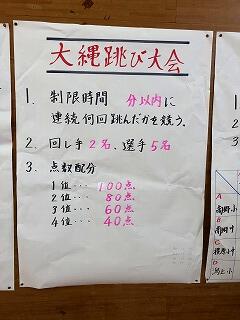 大縄跳び大会
1. 制限時間 分以内に
連続何回跳んだかを競う。
2. 回し手2名、選手5名
3. 点数配分
1位… 100点
2位… 80点
3位… 60点
4位… 40点
A
B
C
D